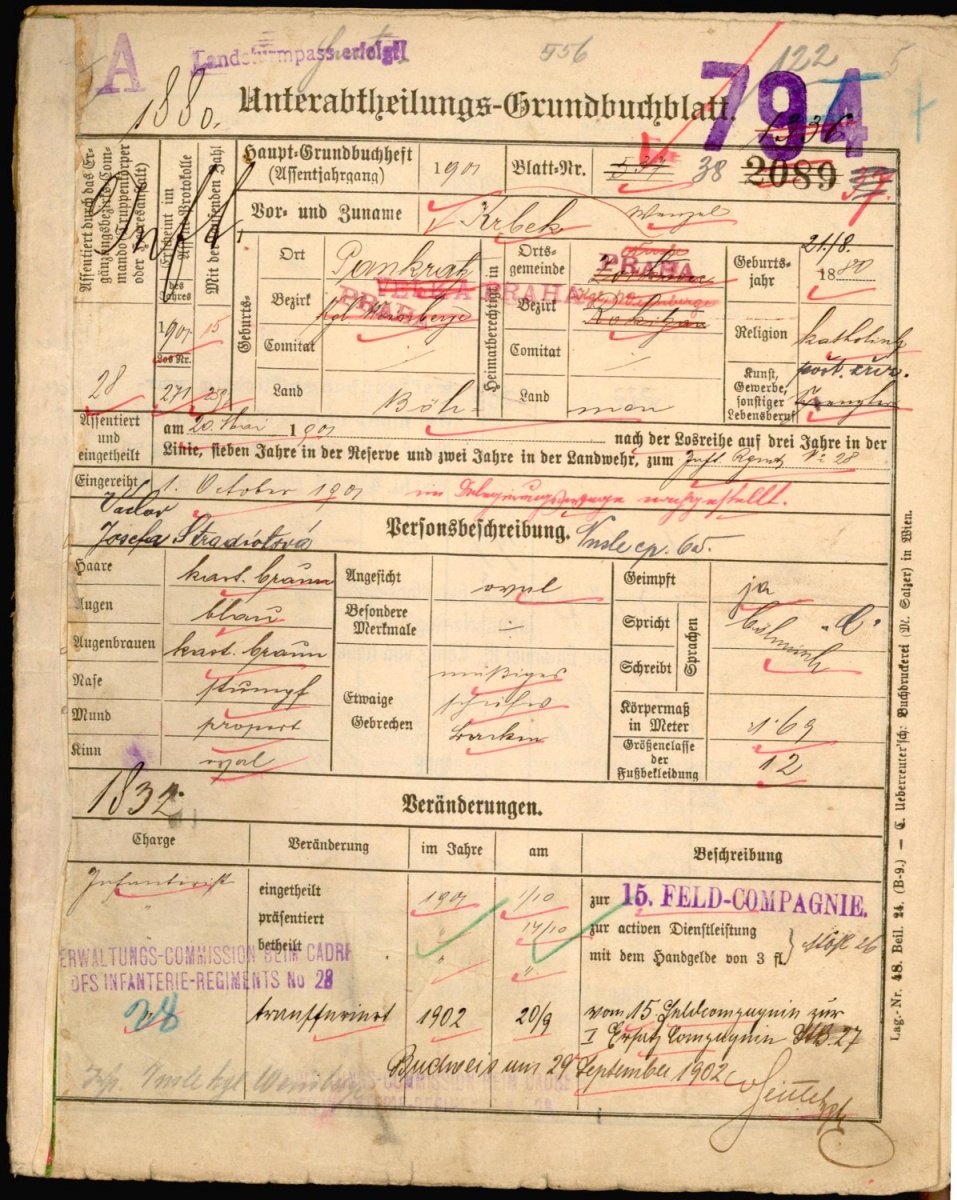 A
Landsturmpass erfolgt!
556
122
1880.
Unterabtheilungs-Grundbuchblatt.
794
Assentiert durch das Ergänzungsbezirks-Commando (Truppenkörper oder Heeresanstalt)
28
Erscheint im Assent-Protokolle
des Jahres
1901
Los Nr.
271
Mit der laufenden Zahl
15
Haupt-Grundbuchheft
(Assentjahrgang)
1901
Blatt-Nr.
537 38
2089
37.
Vor- und Zuname
Krbek Wenzel
Geburts-
Ort
Pankraz
Bezirk
kgl Weinberge
VELKÁ PRAHA
PRAHA
Comitat
Land
Böh-
Heimatberechtigt in
Ortsgemeinde
PRAHA
Bezirk
Kgl. Weinberge
Rokitzan
Comitat
Land
men
Geburtsjahr
21/8.
1880
Religion
katholisch
Kunst, Gewerbe, sonstiger Lebensberuf
Assentiert und eingetheilt
am 20. Mai 1901 nach der Losreihe auf drei Jahre in der
Linie, sieben Jahre in der Reserve und zwei Jahre in der Landwehr, zum Inft. Rgmt. No 28
Eingereiht 1. October 1901 im nachgestellt.
Václav
Josefa Stradiotová
Personsbeschreibung.
Nusle cp. 65.
Haare
kast. braun
Augen
blau
Augenbrauen
kast. braun
Nase
stumpf
Mund
proport
Kinn
oval
Angesicht
oval
Besondere Merkmale
Etwaige Gebrechen
Geimpft
ja
Spricht
Schreibt
Sprachen
böhmisch
Körpermaß in Meter
1·69
Größenclasse der Fußbekleidung
12
1832
Veränderungen.
Charge
Veränderung
im Jahre
am
Beschreibung
Infanterist
eingetheilt
1901
1/10
zur 15. FELD-COMPAGNIE.
präsentiert
"
14/10
zur activen Dienstleistung
betheilt
"
"
mit dem Handgelde von 3 fl.
VERWALTUNGS-COMMISSION BEIM CADRE
DES INFANTERIE-REGIMENTS No 28
28
transferiert
1902
20/9
vom 15. Feldcompagnie zur
I Ersatz Compagnie StB. 27
Budweis am 29 September 1902
Nusle kgl Weinberge
Lag.-Nr. 48. Beil. 24. (B-9.) — C. Ueberreuter'sche Buchdruckerei (M. Salzer) in Wien.